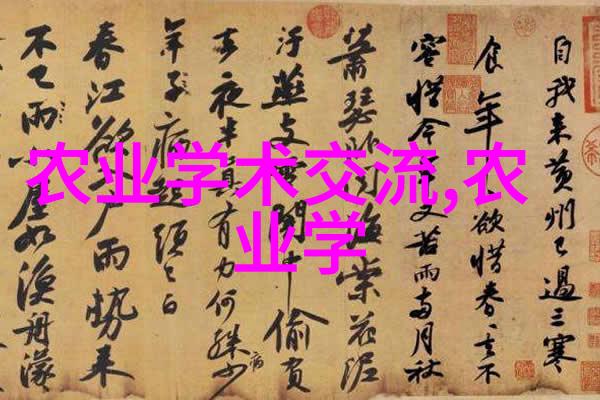 农业学术交流,农
业学
自我来黄州已過三寒
食年〻欲惜春〻去不
容惜今年又苦雨兩月秋
蕭瑟卧聞海棠花泥
汙燕支雪闇中偷負
去夜半真有力何殊少
病
年子病起頭已白
春江欲入户雨勢来
不已雨小屋如漁舟濛